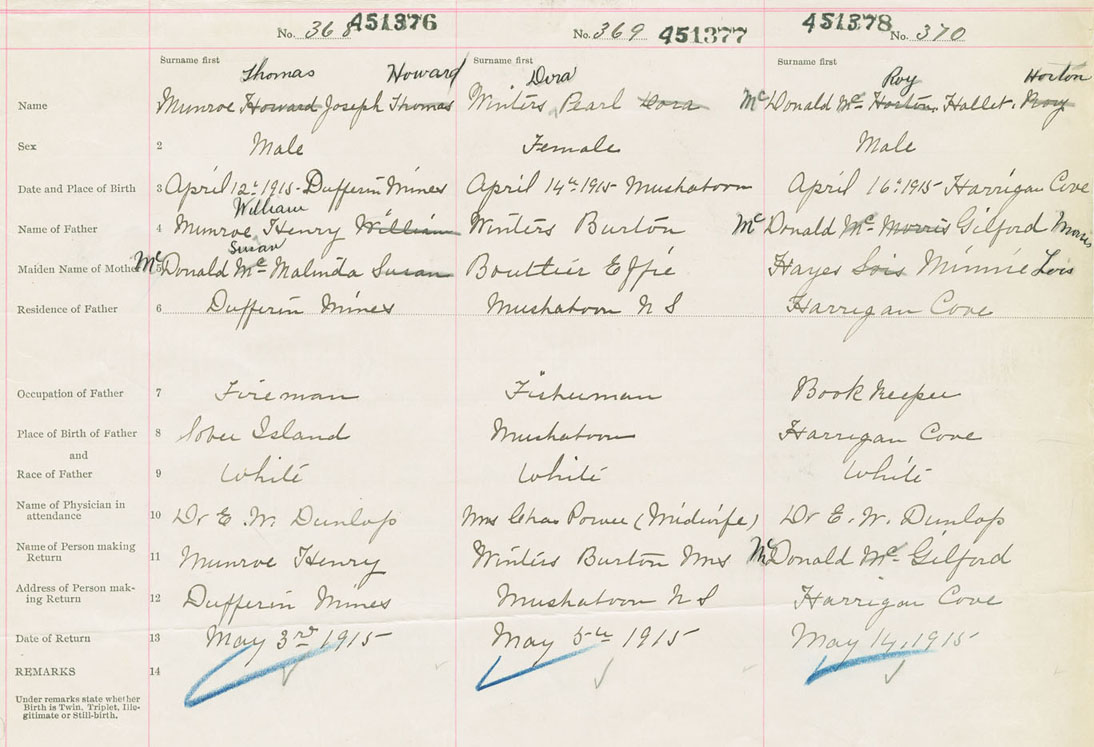 No. 368 451376 No. 369 451377 451378 No. 370
Surname first Surname first Surname first
Thomas Howard Dora Roy Horton
Name Munroe Howard Joseph Thomas Winters Pearl Dora McDonald Mc Horton Hallet. Roy
Sex 2 Male Female Male
Date and Place of Birth 3 April 12th 1915 - Dufferin Mines April 14th 1915 - Mushaboom April 16th 1915 - Harrigan Cove
William
Name of Father 4 Munroe Henry William Winters Burton McDonald Mc Morris Gilford Morris
Susan
Maiden Name of Mother 5 McDonald Mc Malinda Susan Bouttier Effie Hayes Lois Minnie Lois
Residence of Father 6 Dufferin Mines Mushaboom N S Harrigan Cove
Occupation of Father 7 Fireman Fisherman Book Keeper
Place of Birth of Father 8 Sober Island Mushaboom Harrigan Cove
and
Race of Father 9 White White White
Name of Physician in
attendance 10 Dr E. W. Dunlop Mrs Chas Power (Midwife) Dr E. W. Dunlop
Name of Person making
Return 11 Munroe Henry Winters Burton Mrs McDonald Mc Gilford
Address of Person mak-
ing Return 12 Dufferin Mines Mushaboom N S Harrigan Cove
Date of Return 13 May 3rd 1915 May 5th 1915 May 14, 1915
REMARKS 14
Under remarks state whether
Birth is Twin, Triplet, Ille-
gitimate or Still-birth.